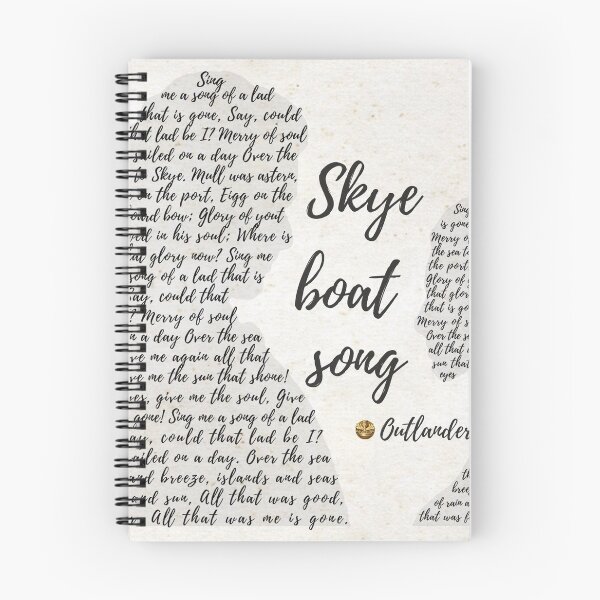 Sing
me a song of a lad
that is gone, Say, could
lad be I? Merry of soul
sailed on a day Over the
to Skye. Mull was astern,
on the port, Eigg on the
bow; Glory of yout
in his soul; Where is
glory now? Sing me
song of a lad that is
could that
? Merry of soul
on a day Over the sea
me again all that
me the sun that shone!
give me the soul, Give
gone! Sing me a song of a lad
could that lad be I?
sailed on a day. Over the sea
and breeze, islands and seas
and sun, All that was good,
All that was me is gone.
Skye
boat
song
Outlander
Sing
is gone
Merry of
the sea to
the port
Glory of
that glory
that is go
Merry of s
Over the se
all that
sun that
eyes
th
bree
of rain a
that was f